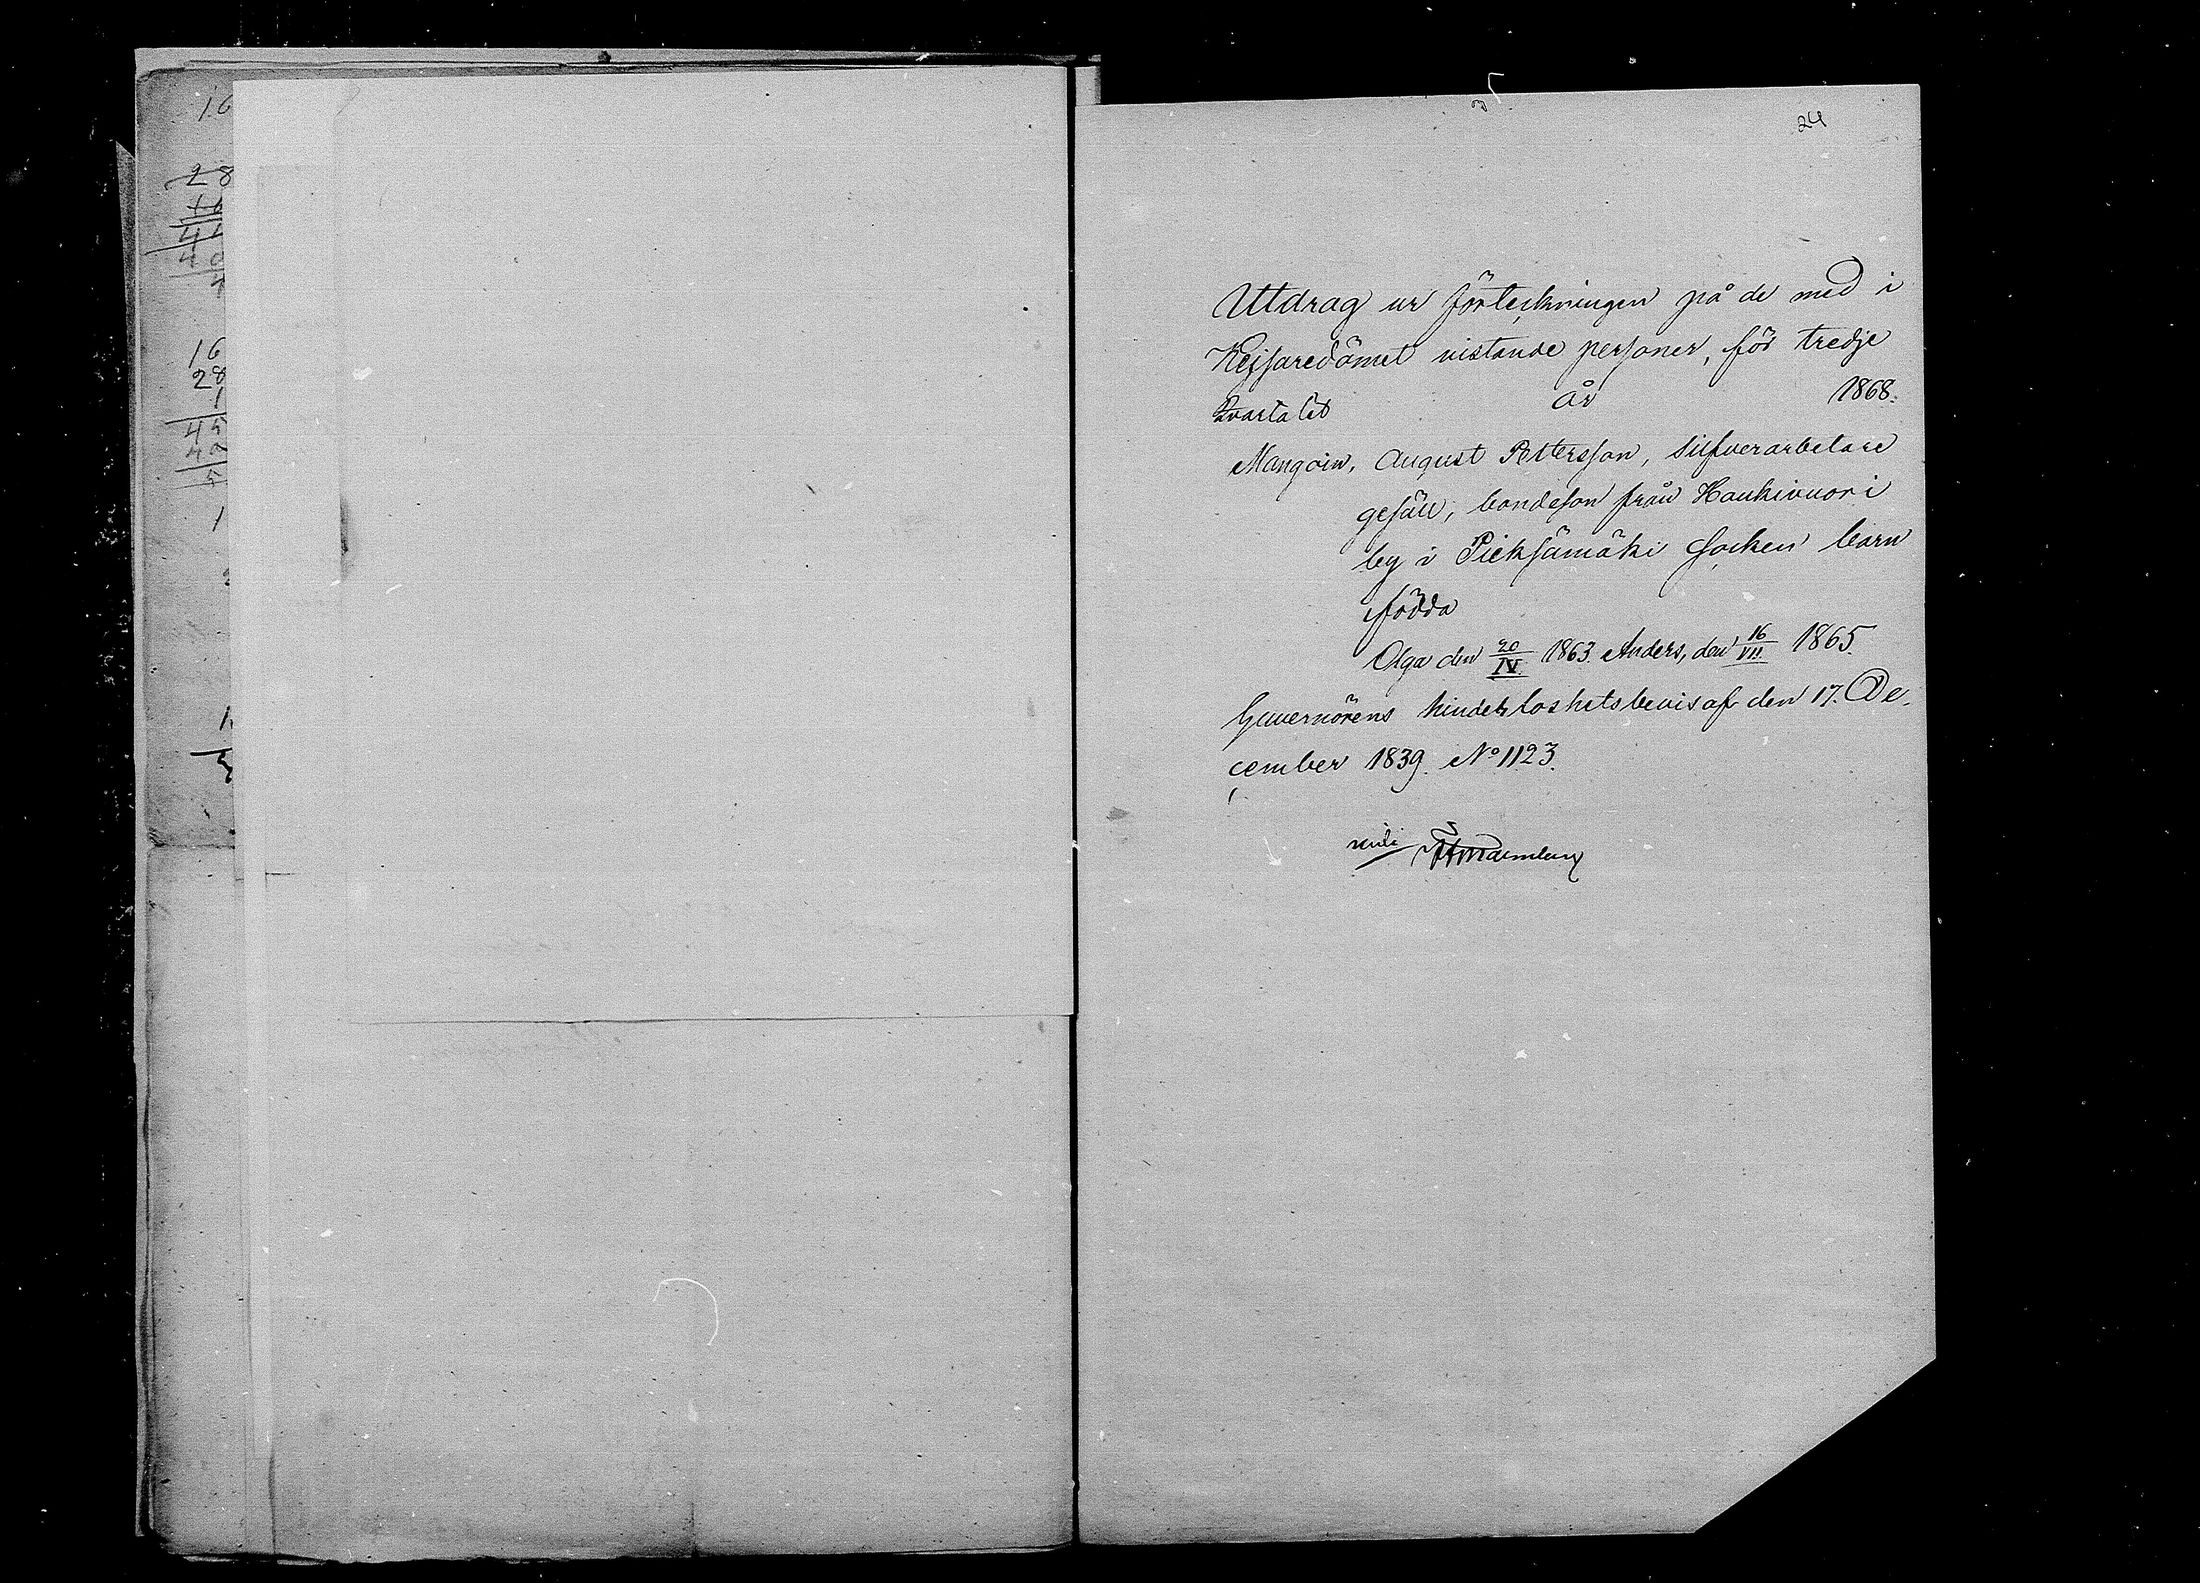 24
Utdrag ur förteckningen på de med i
Kejsaredömet vistande personer, för tredje
kvartalet år 1868.
Mangoin, August Pettersson, silfverarbetare
gesäll, bondeson från Haukivuori
by i Pieksämäki socken barn
födda
Olga den 20/IV. 1863. Anders, den 16/VII 1865.
Guvernörens hinderloshetsbevis af den 17. De-
cember 1839. No 1123.
16
28
16
28
1
45